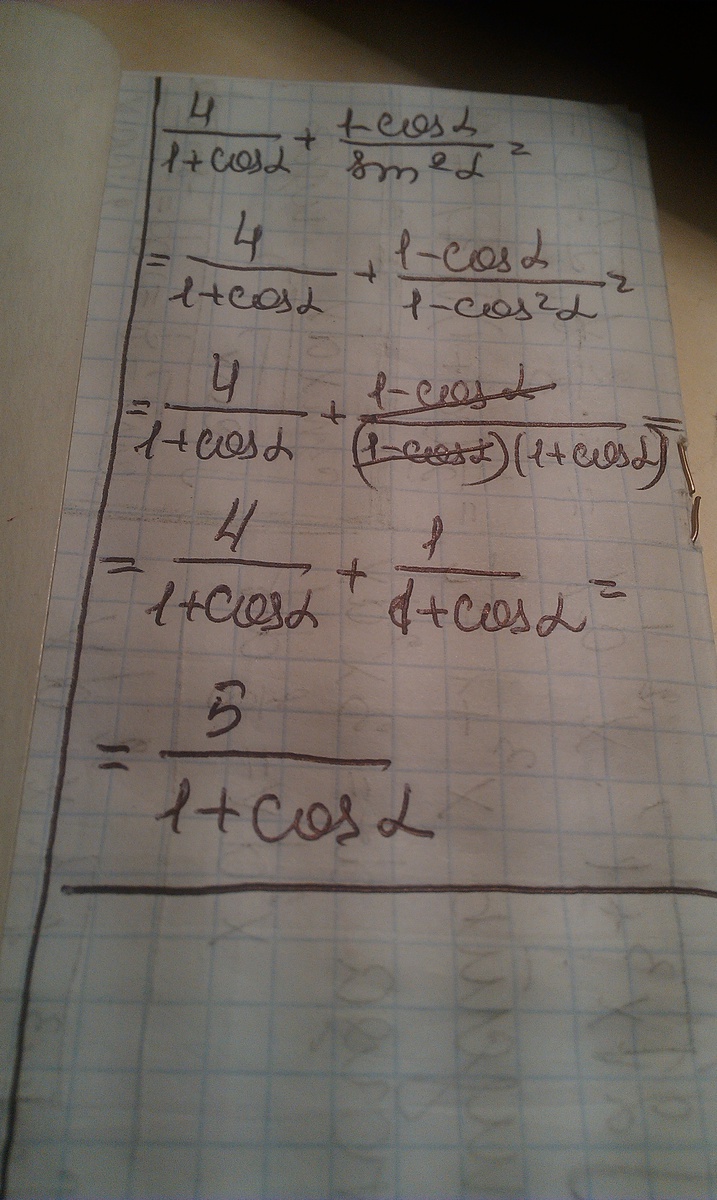 4/(1+cosα) + (1-cosα)/(sin²α) =
= 4/(1+cosα) + (1-cosα)/(1-cos²α) =
= 4/(1+cosα) + (1-cosα)/((1-cosα)(1+cosα)) =
= 4/(1+cosα) + 1/(1+cosα) =
= 5/(1+cosα)